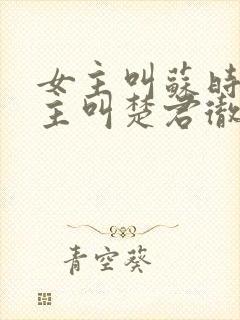 女主叫蘇時
主叫楚君徹
青空葵